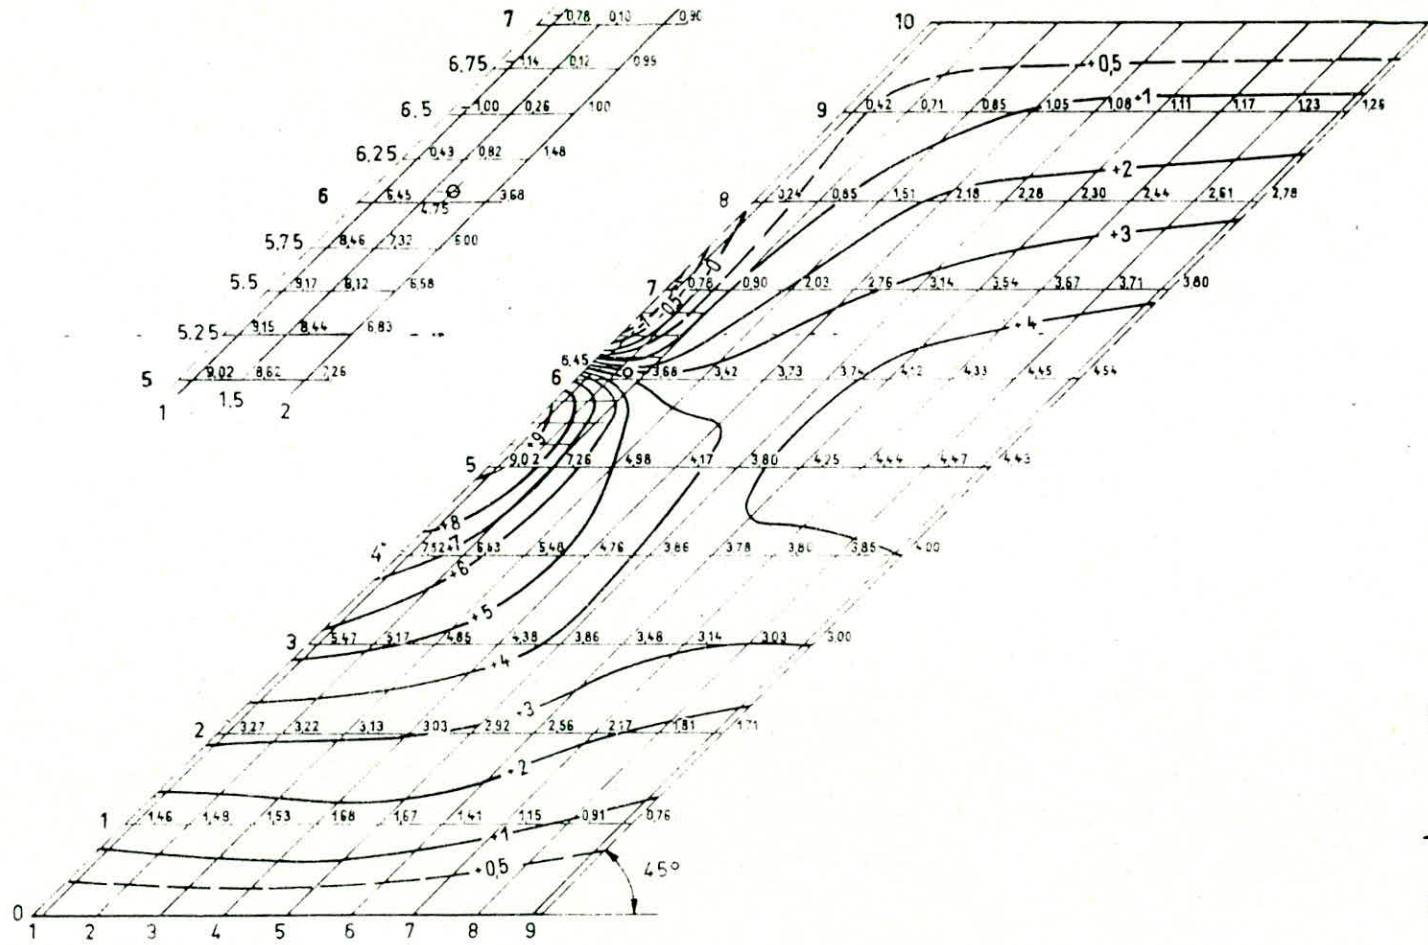 7 0,78 0,10 0,90
6,75 1,14 0,12 0,95
6,5 1,00 0,26 1,00
6,25 0,43 0,82 1,48
6 6,45 4,75 3,68
5,75 8,46 7,32 6,00
5.5 9,17 8,12 6,58
5.25 9,15 8,44 6,83
5 9,02 8,62 7,26
1 1,5 2
10
+0,5
+1
9 0,42 0,71 0,85 1,05 1,08 1,11 1,17 1,23 1,26
+2
8 0,24 0,85 1,51 2,18 2,28 2,30 2,44 2,61 2,78
+3
0
7 0,78 0,90 2,03 2,76 3,14 3,54 3,67 3,71 3,80
-1 -0,5
+4
6,45
6 3,68 3,42 3,73 3,74 4,12 4,33 4,45 4,54
+9
5 9,02 7,26 4,98 4,17 3,80 4,25 4,44 4,47 4,43
+8
+7
4 7,52 6,43 5,48 4,76 3,86 3,78 3,80 3,85 4,00
+6
+5
3 5,47 5,17 4,85 4,38 3,86 3,48 3,14 3,03 3,00
+4
+3
2 3,27 3,22 3,13 3,03 2,92 2,56 2,17 1,81 1,71
+2
1 1,46 1,49 1,53 1,68 1,67 1,41 1,15 0,91 0,76
+1
+0,5
45°
0
1 2 3 4 5 6 7 8 9